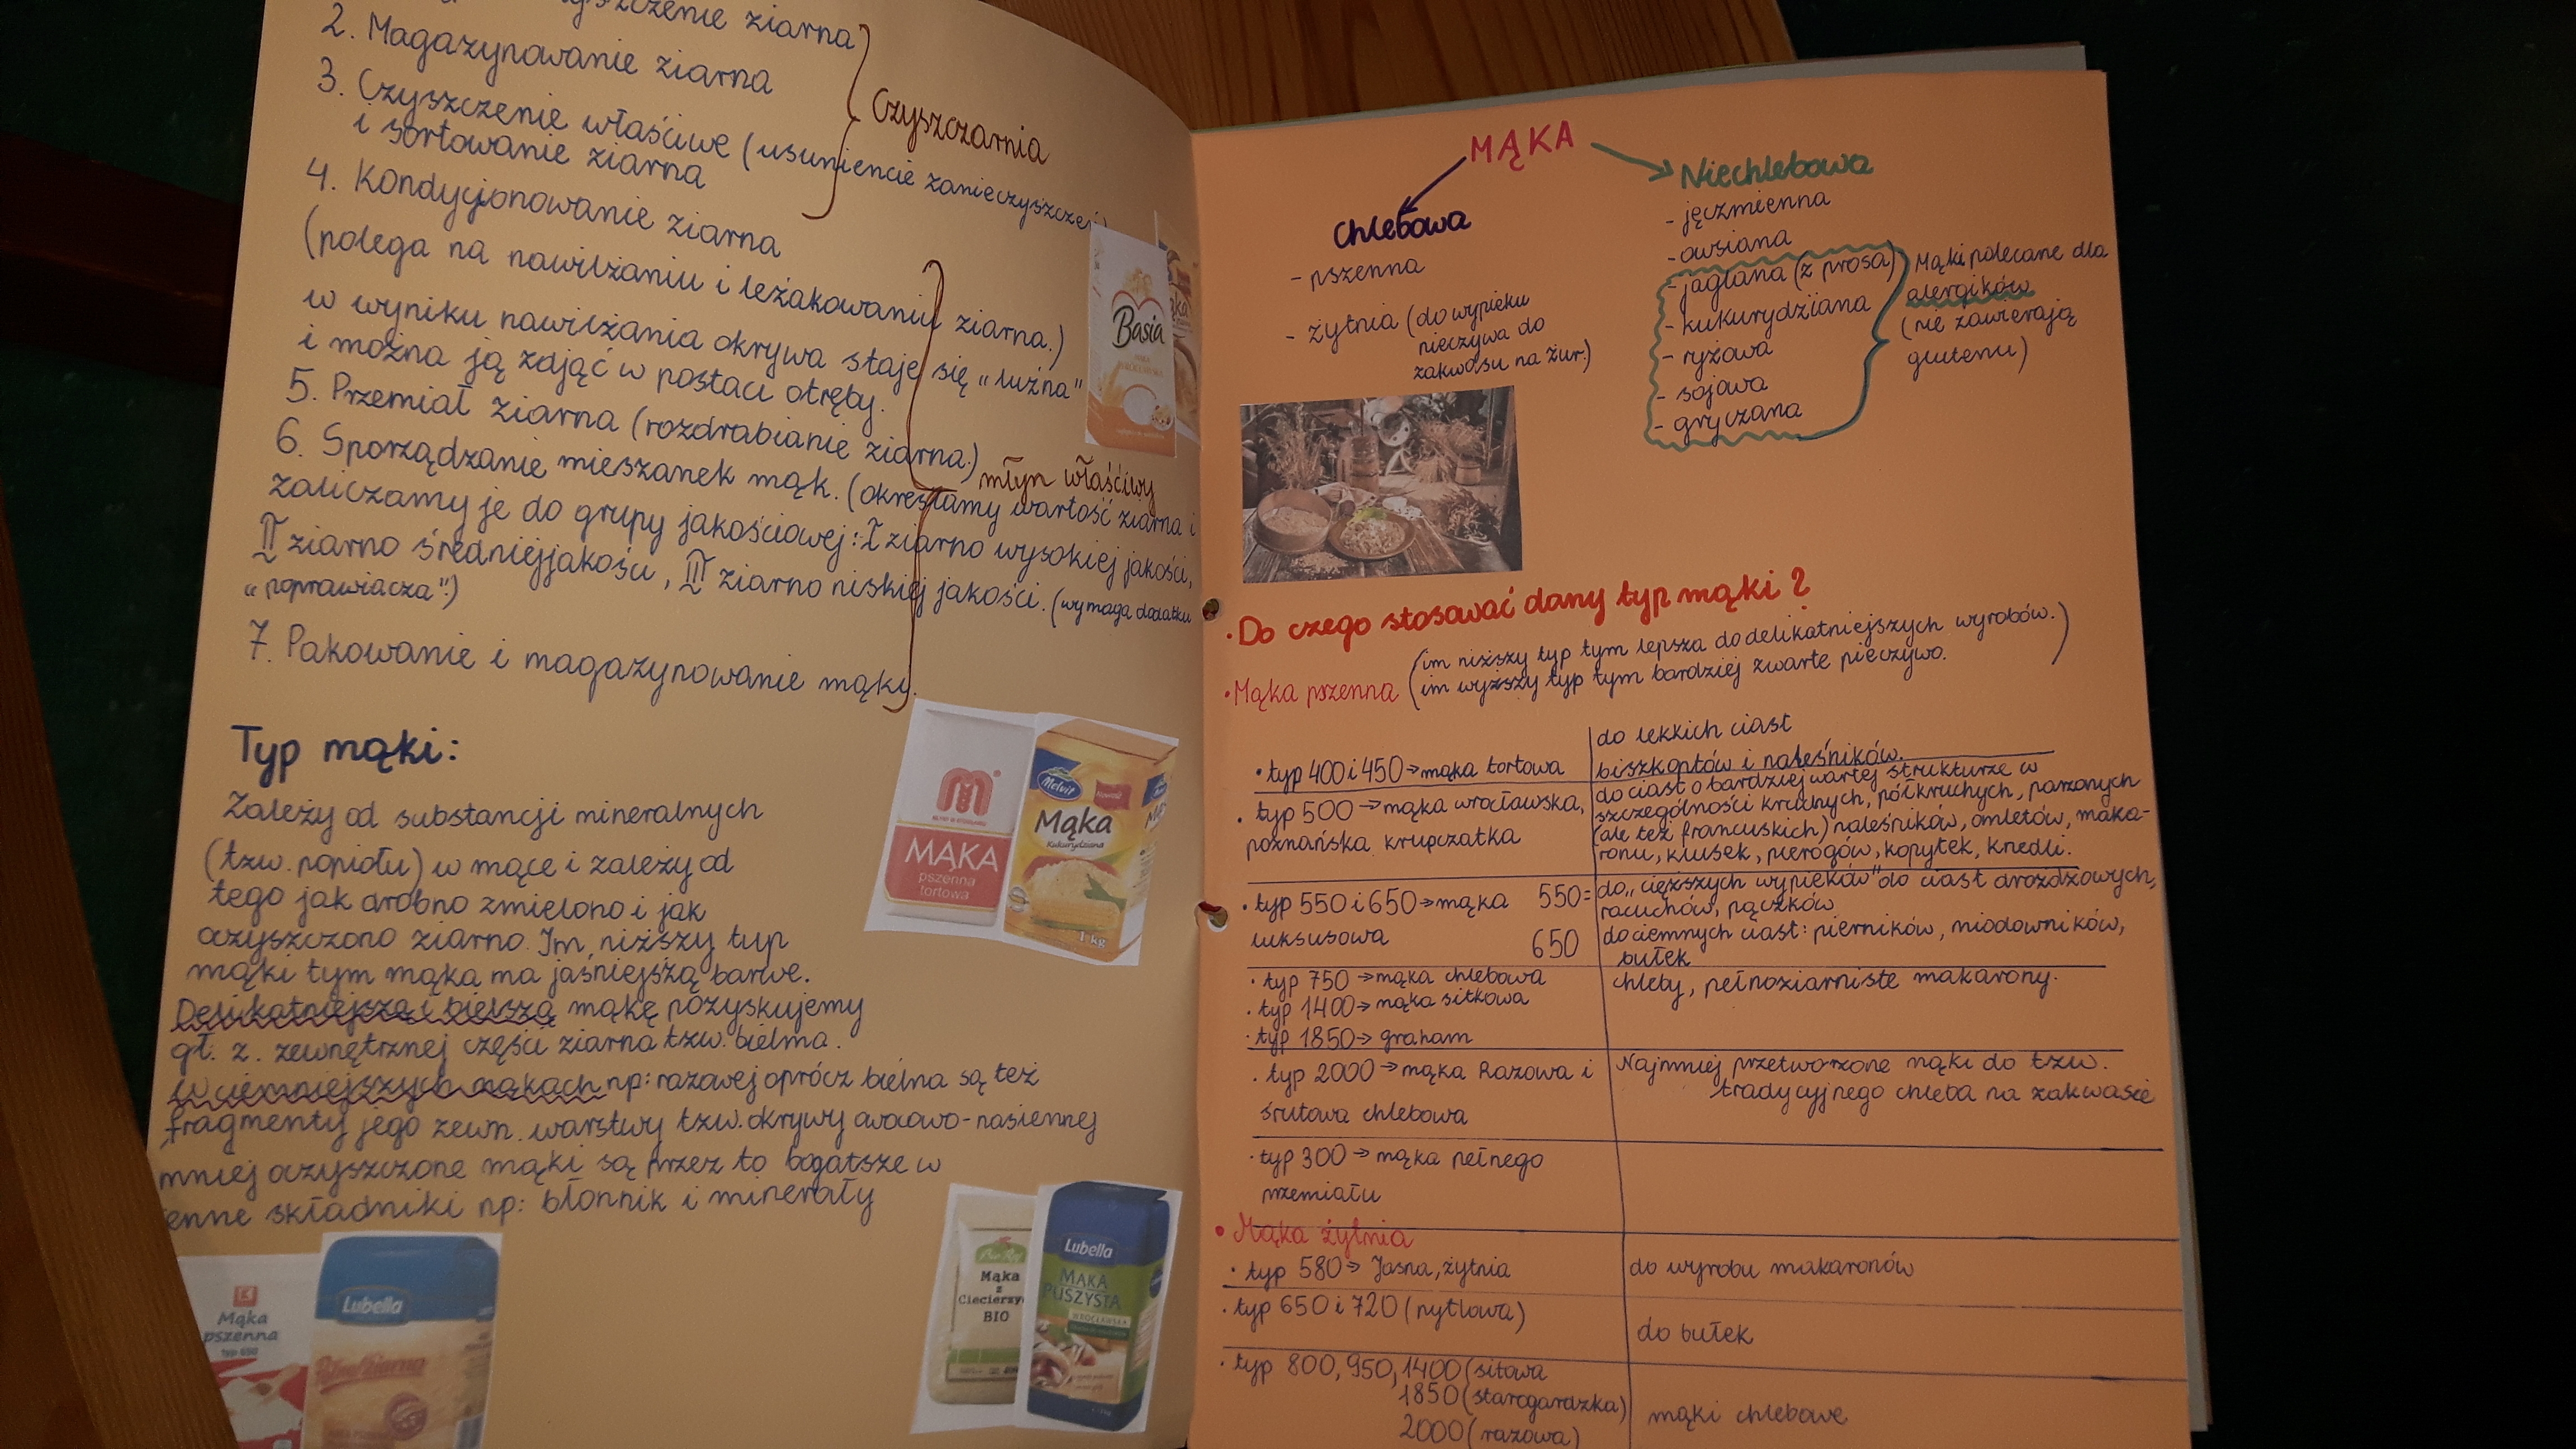 czenie ziarna
2. Magazynowanie ziarna
3. Czyszczenie właściwe (usuniencie zanieczyszczeń)
i sortowanie ziarna
Czyszczarnia
4. Kondycjonowanie ziarna
(polega na nawilżaniu i leżakowaniu ziarna.)
w wyniku nawilżania okrywa staje się "luźna"
i można ją zdjąć w postaci otręby.
5. Przemiał ziarna (rozdrabianie ziarna.)
młyn właściwy
6. Sporządzanie mieszanek mąk. (określamy wartość ziarna i
zaliczamy je do grupy jakościowej: I ziarno wysokiej jakości,
II ziarno średniej jakości, III ziarno niskiej jakości. (wymaga dodatku
"poprawiacza".)
7. Pakowanie i magazynowanie mąky.
Typ mąki:
Zależy od substancji mineralnych
(tzw. popiołu) w mące i zależy od
tego jak drobno zmielono i jak
oczyszczono ziarno. Im niższy typ
mąki tym mąka ma jaśniejszą barwe.
Delikatniejszą i bielszą mąkę pozyskujemy
gł. z. zewnętrznej części ziarna tzw. bielma.
W ciemniejszych mąkach np: razowej oprócz bielna są też
fragmenty jego zewn. warstwy tzw. okrywy owocowo-nasiennej
mniej oczyszczone mąki są przez to bogatsze w
enne składniki np: błonnik i minerały
Basia
MĄKA
pszenna
tortowa
Melvit
Mąka
Kukurydziana
1 kg
Mąka
pszenna
typ 650
Lubella
Mąka
z
Ciecierzy
BIO
Lubella
MĄKA
PUSZYSTA
WROCŁAWSKA
MĄKA
Chlebowa
- pszenna
- żytnia (do wypieku
pieczywa do
zakwasu na żur.)
Niechlebowa
- jęczmienna
- owsiana
- jaglana (z prosa)
- kukurydziana
- ryżowa
- sojowa
- gryczana
Mąki polecane dla
alergików
(nie zawierają
glutenu)
• Do czego stosować dany typ mąki?
• Mąka pszenna (im niższy typ tym lepsza do delikatniejszych wyrobów.)
im wyższy typ tym bardziej zwarte pieczywo.
• typ 400 i 450 → mąka tortowa
do lekkich ciast
biszkoptów i naleśników.
• typ 500 → mąka wrocławska,
poznańska krupczatka
do ciast o bardziej wartej strukturze w
szczególności kruchych, półkruchych, parzonych
(ale też francuskich) naleśników, omletów, maka-
ronu, klusek, pierogów, kopytek, knedli.
• typ 550 i 650 → mąka
luksusowa
550= do "cięższych wypieków" do ciast drożdżowych,
racuchów, pączków
650 do ciemnych ciast: pierników, miodowników,
bułek
• typ 750 → mąka chlebowa
• typ 1400 → mąka sitkowa
• typ 1850 → graham
chleby, pełnoziarniste makarony.
• typ 2000 → mąka Razowa i
śrutowa chlebowa
Najmniej przetworzone mąki do tzw.
tradycyjnego chleba na zakwasie
• typ 300 → mąka pełnego
przemiału
• Mąka żytnia
• typ 580 → Jasna, żytnia
do wyrobu makaronów
• typ 650 i 720 (pytlowa)
do bułek
• typ 800, 950, 1400 (sitowa
1850 (starogardzka)
2000 (razowa)
mąki chlebowe